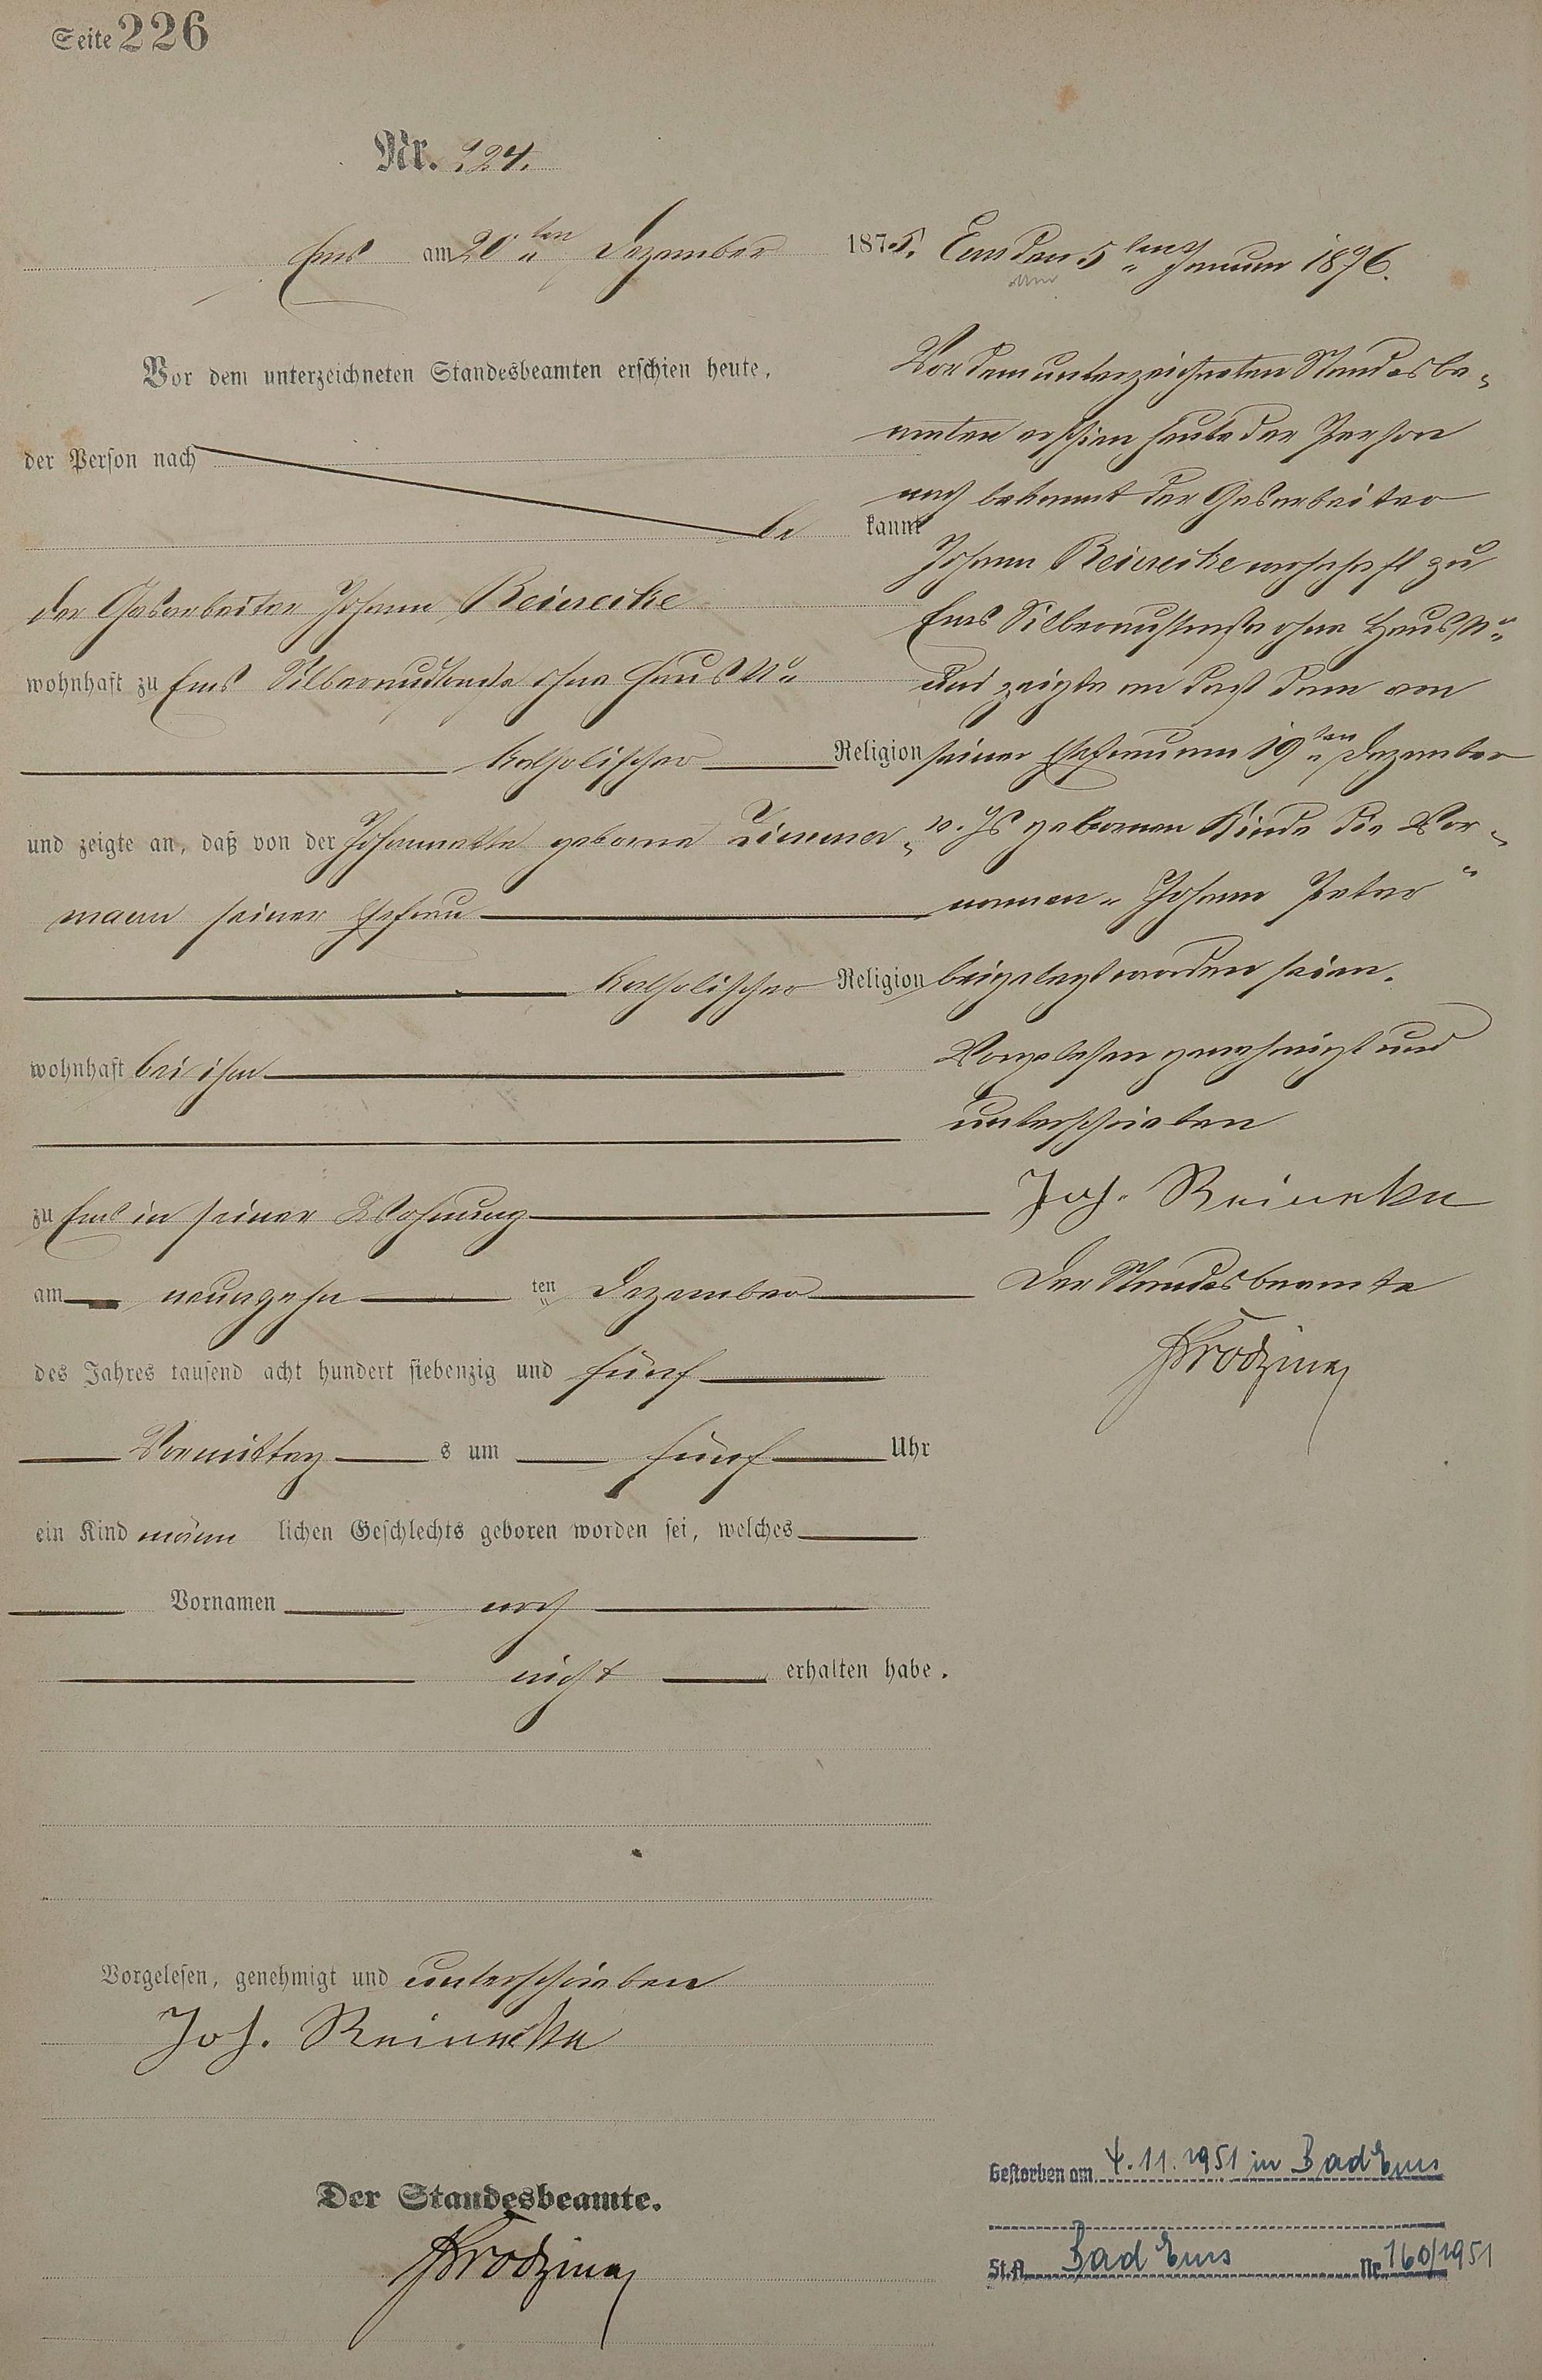 Seite 226
Nr. 224.
Ems am 20ten Dezember 1875.
Vor dem unterzeichneten Standesbeamten erschien heute,
der Person nach
be kannt
der Gasarbeiter Johann Reinecke
wohnhaft zu Ems Silberaustraße ohne Haus No
katholischer Religion
und zeigte an, daß von der Johannette geborne Zimmer-
mann seiner Ehefrau
katholischer Religion
wohnhaft bei ihm
zu Ems in seiner Wohnung
am neunzehn ten Dezember
des Jahres tausend acht hundert siebenzig und fünf
Vormittag s um fünf Uhr
ein Kind männ lichen Geschlechts geboren worden sei, welches
Vornamen noch
nicht erhalten habe.
Vorgelesen, genehmigt und unterschrieben
Joh. Reinecke
Der Standesbeamte.
Ems den 5ten Januar 1876.
Vor dem unterzeichneten Standesbe-
amten erschien heute der Person
nach bekannt der Gasarbeiter
Johann Reinecke wohnhaft zu
Ems Silberaustraße ohne Haus No
und zeigte an daß dem von
seiner Ehefrau am 19ten Dezember
v. Js geborenen Kinde die Vor-
namen "Johann Peter"
beigelegt worden seien.
Vorgelesen genehmigt und
unterschrieben
Joh. Reinecke
Der Standesbeamte
Gestorben am 4.11.1951 in Bad Ems
St.A. Bad Ems Nr. 160/1951